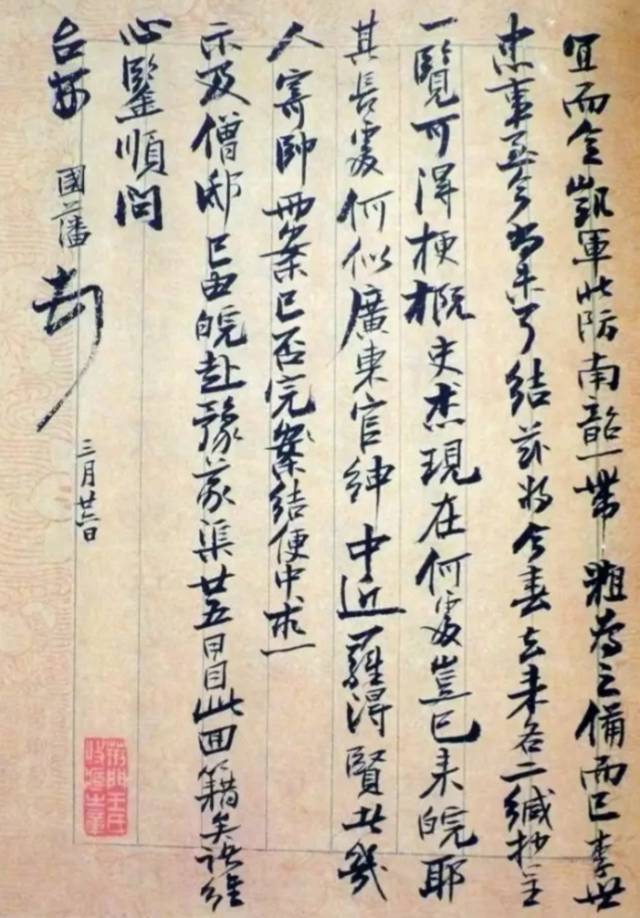 宜而令凱軍此防南韶一帶粗為之備而已李世
忠事至今尚未了結茲將今春去來各二緘抄呈
一覽可得梗概史杰現在何處豈已來皖耶
其長處何似廣東官紳中近羅得賢者幾
人寄帥兩案已否完案結便中求
示及僧邸已由皖赴豫義渠廿五日自此回籍矣諸維
心鑒順問
台安
國藩頓
三月廿六日